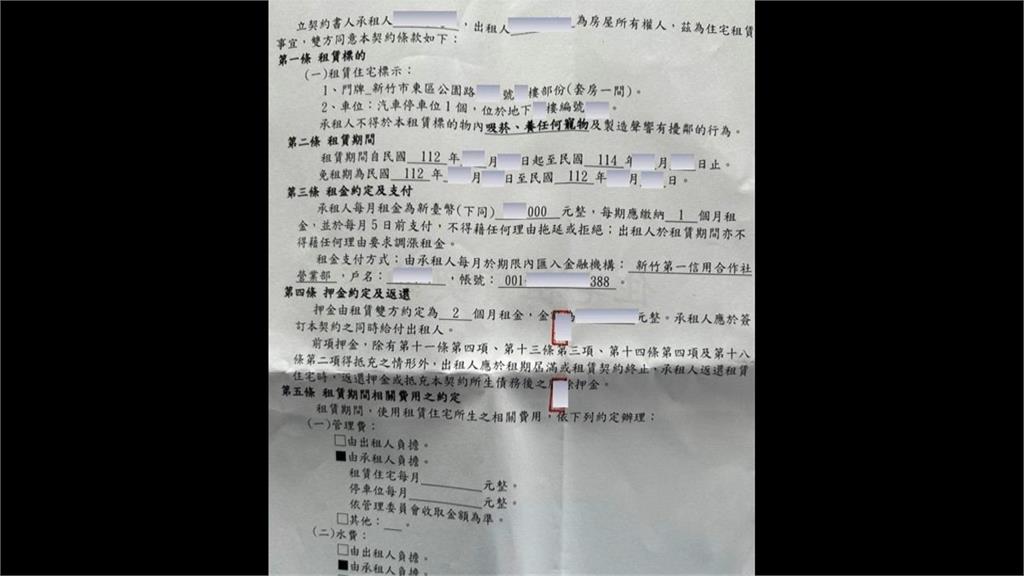 立契約書人承租人 ，出租人 為房屋所有權人，茲為住宅租賃
事宜，雙方同意本契約條款如下：
第一條 租賃標的
(一)租賃住宅標示：
1、門牌_新竹市東區公園路 號 樓部份(套房一間)。
2、車位：汽車停車位1個，位於地下 樓編號 。
承租人不得於本租賃標的物內吸菸、養任何寵物及製造聲響有擾鄰的行為。
第二條 租賃期間
租賃期間自民國 112 年 月 日起至民國 114 年 月 日止。
免租期為民國 112 年 月 日至民國 112 年 月 日。
第三條 租金約定及支付
承租人每月租金為新臺幣(下同) 000 元整，每期應繳納 1 個月租
金，並於每月5日前支付，不得藉任何理由拖延或拒絕；出租人於租賃期間亦不
得藉任何理由要求調漲租金。
租金支付方式：由承租人每月於期限內匯入金融機構： 新竹第一信用合作社
營業部 ，戶名： ，帳號：001- 388 。
第四條 押金約定及返還
押金由租賃雙方約定為 2 個月租金，金 為 元整。承租人應於簽
訂本契約之同時給付出租人。
前項押金，除有第十一條第四項、第十三條第三項、第十四條第四項及第十八
條第二項得抵充之情形外，出租人應於租期屆滿或租賃契約終止，承租人返還租賃
住宅時，返還押金或抵充本契約所生債務後之 押金。
第五條 租賃期間相關費用之約定
租賃期間，使用租賃住宅所生之相關費用，依下列約定辦理：
(一)管理費：
□由出租人負擔。
■由承租人負擔。
租賃住宅每月 元整。
停車位每月 元整。
依管理委員會收取金額為準。
□其他： 。
(二)水費：
□由出租人負擔。
■由承租人負擔。